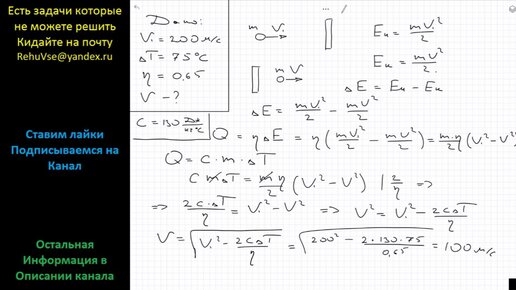 Есть задачи которые
не можете решить
Кидайте на почту
RehuVse@yandex.ru
Ставим лайки
Подписываемся на
Канал
Остальная
Информация в
Описании канала
Дано:
V₁ = 200 м/с
ΔT = 75°C
η = 0,65
V - ?
C = 130 Дж/кг°C
m V₁
Eк = mV₁²/2
m V
Eк = mV²/2
ΔE = Eк - Eк
ΔE = mV₁²/2 - mV²/2
Q = ηΔE = η(mV₁²/2 - mV²/2) = m·η/2 (V₁² - V²)
Q = c·m·ΔT
cmΔT = mη/2 (V₁² - V²) | 2/η =>
=> 2cΔT/η = V₁² - V² => V² = V₁² - 2cΔT/η
V = √(V₁² - 2cΔT/η) = √(200² - 2·130·75/0,65) = 100 м/с